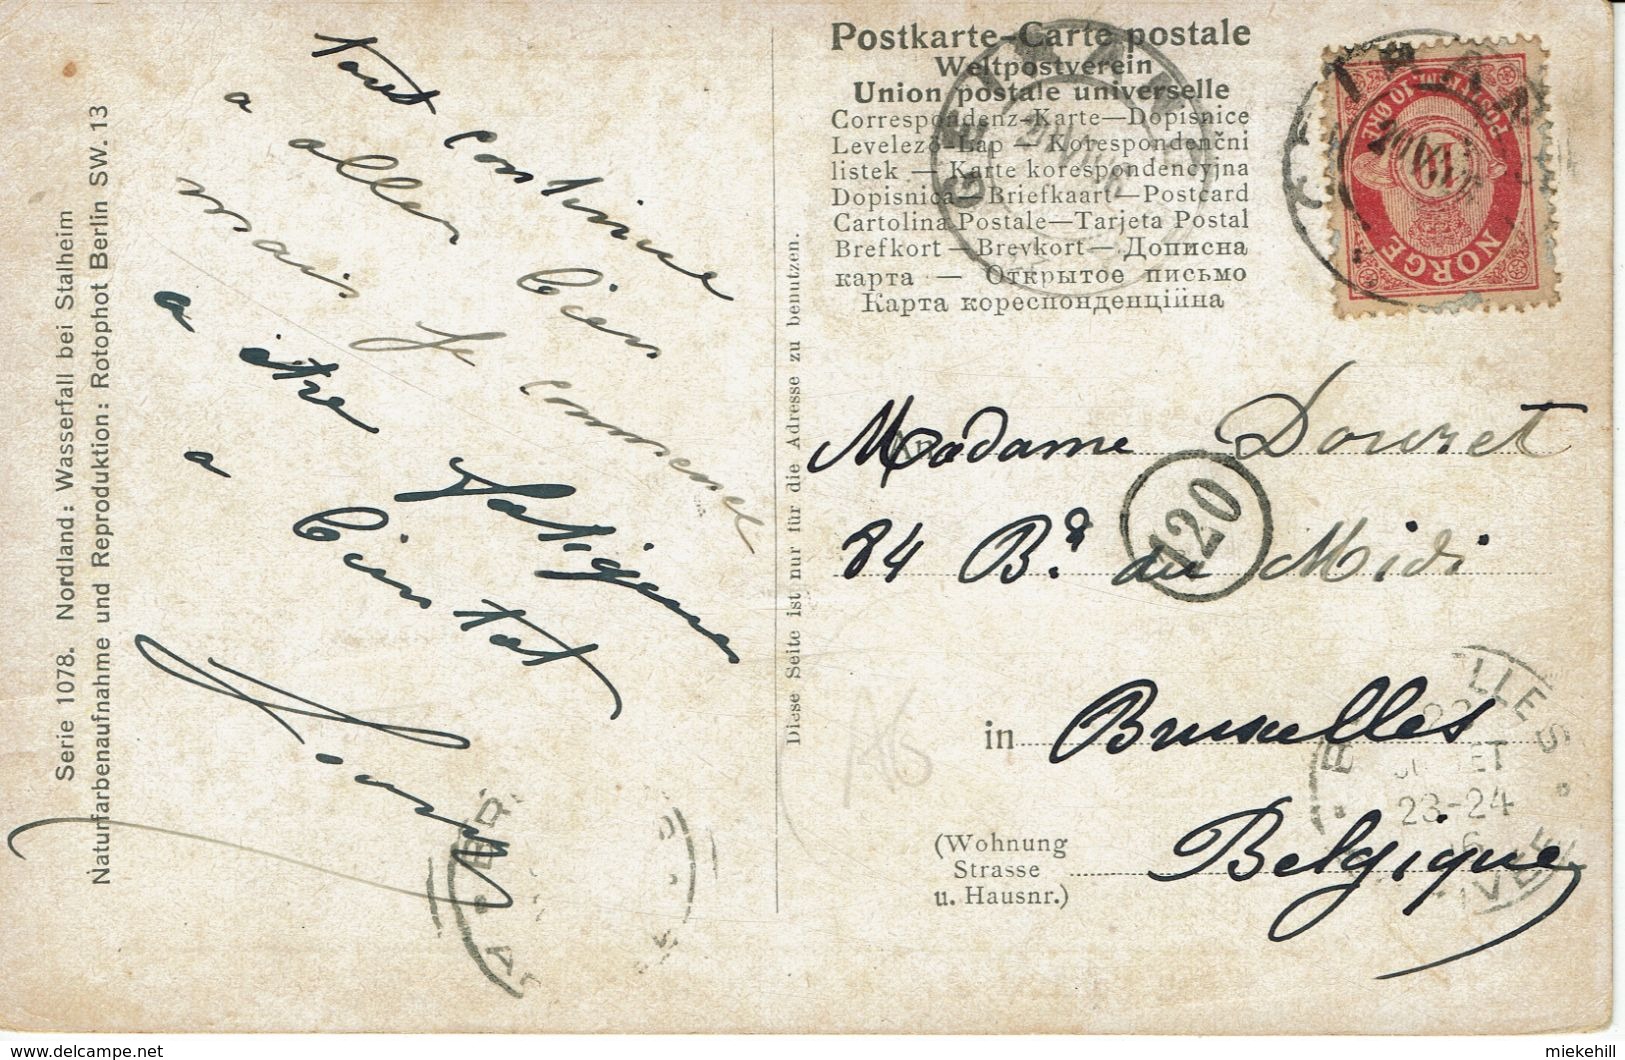 Serie 1078. Nordland: Wasserfall bei Stalheim
Naturfarbenaufnahme und Reproduktion: Rotophot Berlin SW. 13
tout continue
a aller bien
mais je commence
a être fatiguée
a bientot
Diese Seite ist nur für die Adresse zu benutzen.
Postkarte—Carte postale
Weltpostverein
Union postale universelle
Correspondenz-Karte—Dopisnice
Levelező-Lap — Korespondenční
listek — Karte korespondencyjna
Dopisnica—Briefkaart—Postcard
Cartolina Postale—Tarjeta Postal
Brefkort — Brevkort — Дописна
карта — Открытое письмо
Карта кореспонденційна
NORGE
10
Madame Douret
84 Bd. du Midi
120
in Bruxelles
(Wohnung
Strasse
u. Hausnr.)
Belgique
23-24
miekehill